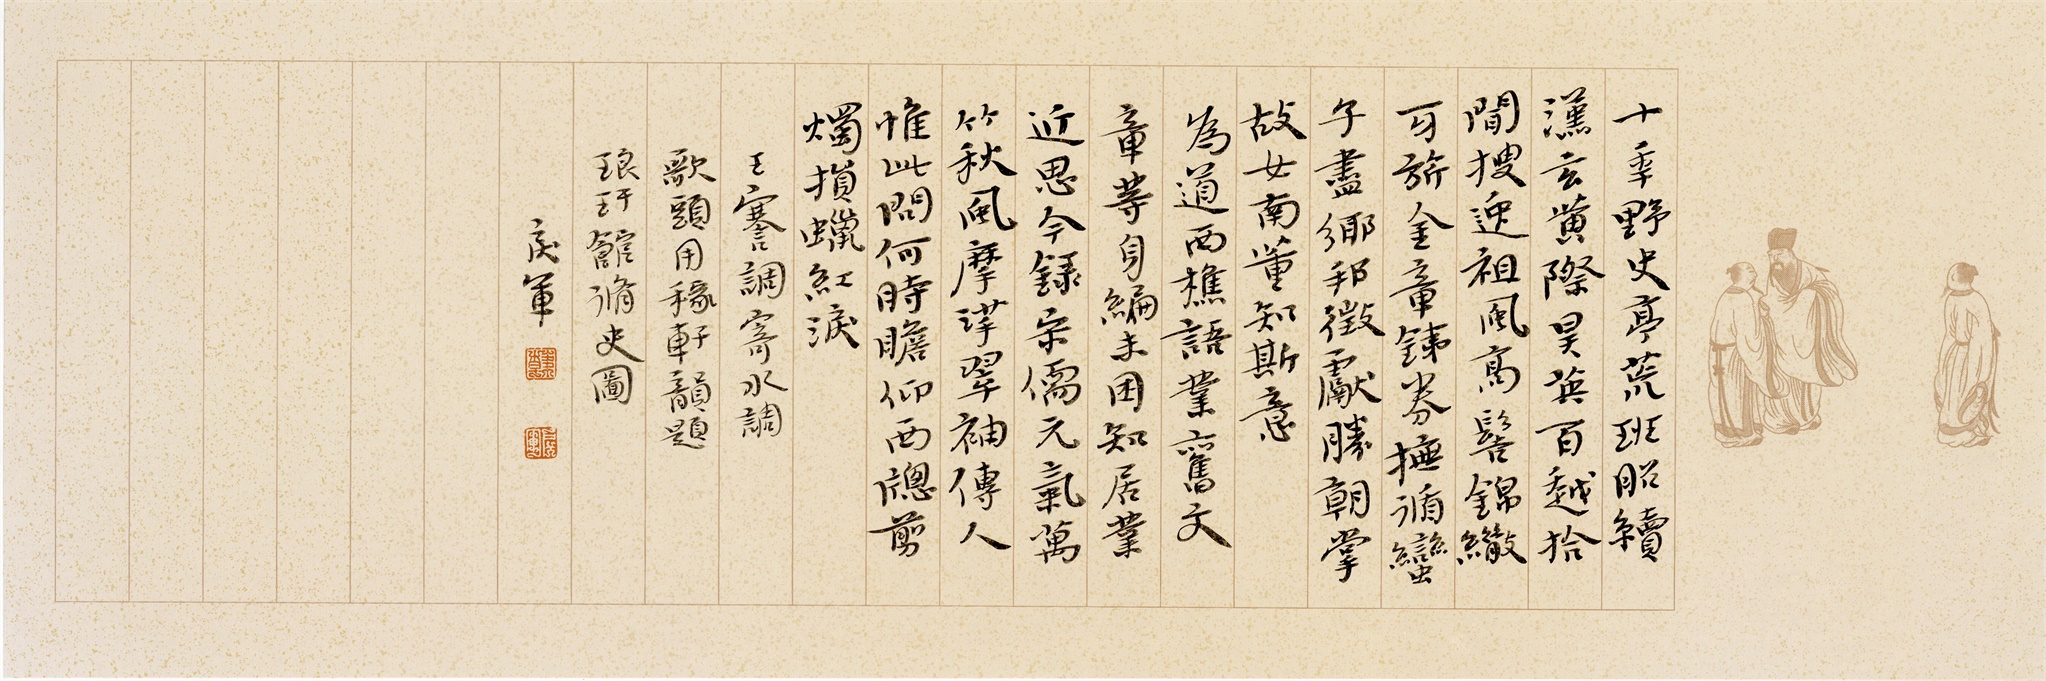 十年野史亭荒班昭續
漢玄黄際昊英百越拾
間搜迎祖風高髻錦繖
牙旂金章鐵券撫循蠻
子盡鄉邦徵獻勝朝掌
故女南董知斯意
為道西樵語業奮文
章等身編未困知居業
近思今録宋儒元氣萬
竹秋風摩挲翠袖傳人
惟此問何時瞻仰西牕剪
燭損蠟紅淚
王謇調寄水調
歌頭用稼軒韻題
琅玕館脩史圖
庆軍